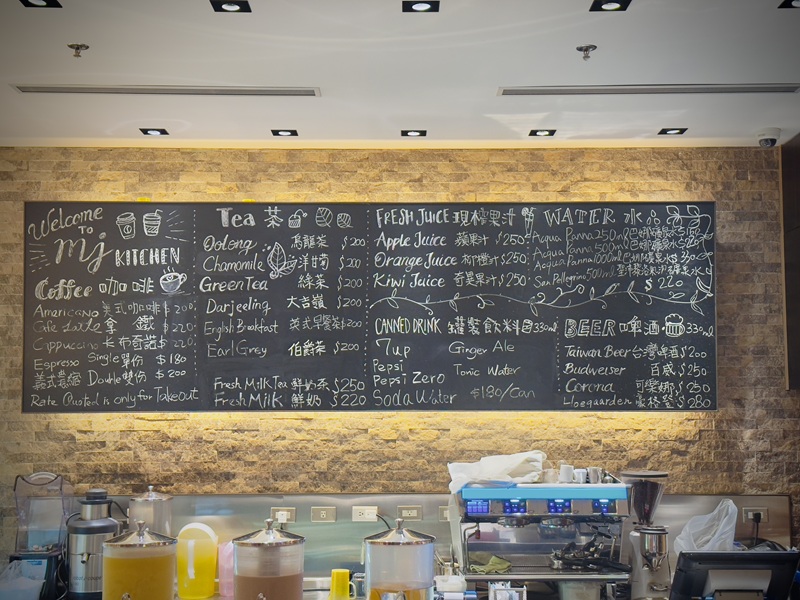 Welcome
TO
mj KITCHEN
Coffee 咖啡
Americano 美式咖啡 $200
Cafe Latte 拿鐵 $220
Cappuccino 卡布奇諾 $220
Espresso Single 雙份 $180
義式濃縮 Double 雙份 $200
Rate Quoted is only for Takeout
Tea 茶
Oolong 烏龍茶 $200
Chamomile 洋甘菊 $200
Green Tea 綠茶 $200
Darjeeling 大吉嶺 $200
English Breakfast 英式早餐茶 $200
Earl Grey 伯爵茶 $200
Fresh Milk Tea 鮮奶茶 $250
Fresh Milk 鮮奶 $220
FRESH JUICE 現榨果汁
Apple Juice 蘋果汁 $250
Orange Juice 柳橙汁 $250
Kiwi Juice 奇異果汁 $250
CANNED DRINK 罐裝飲料 330ml
7up Ginger Ale
Pepsi
Tonic Water
Pepsi Zero
Soda Water $180/Can
WATER 水
Acqua Panna 250ml
Acqua Panna 500ml
Acqua Panna 1000ml
San Pellegrino 500ml
$220
BEER 啤酒 330ml
Taiwan Beer 台灣啤酒 $200
Budweiser 百威 $250
Corona 可愛娜 $250
Hoegaarden 豪格登 $280